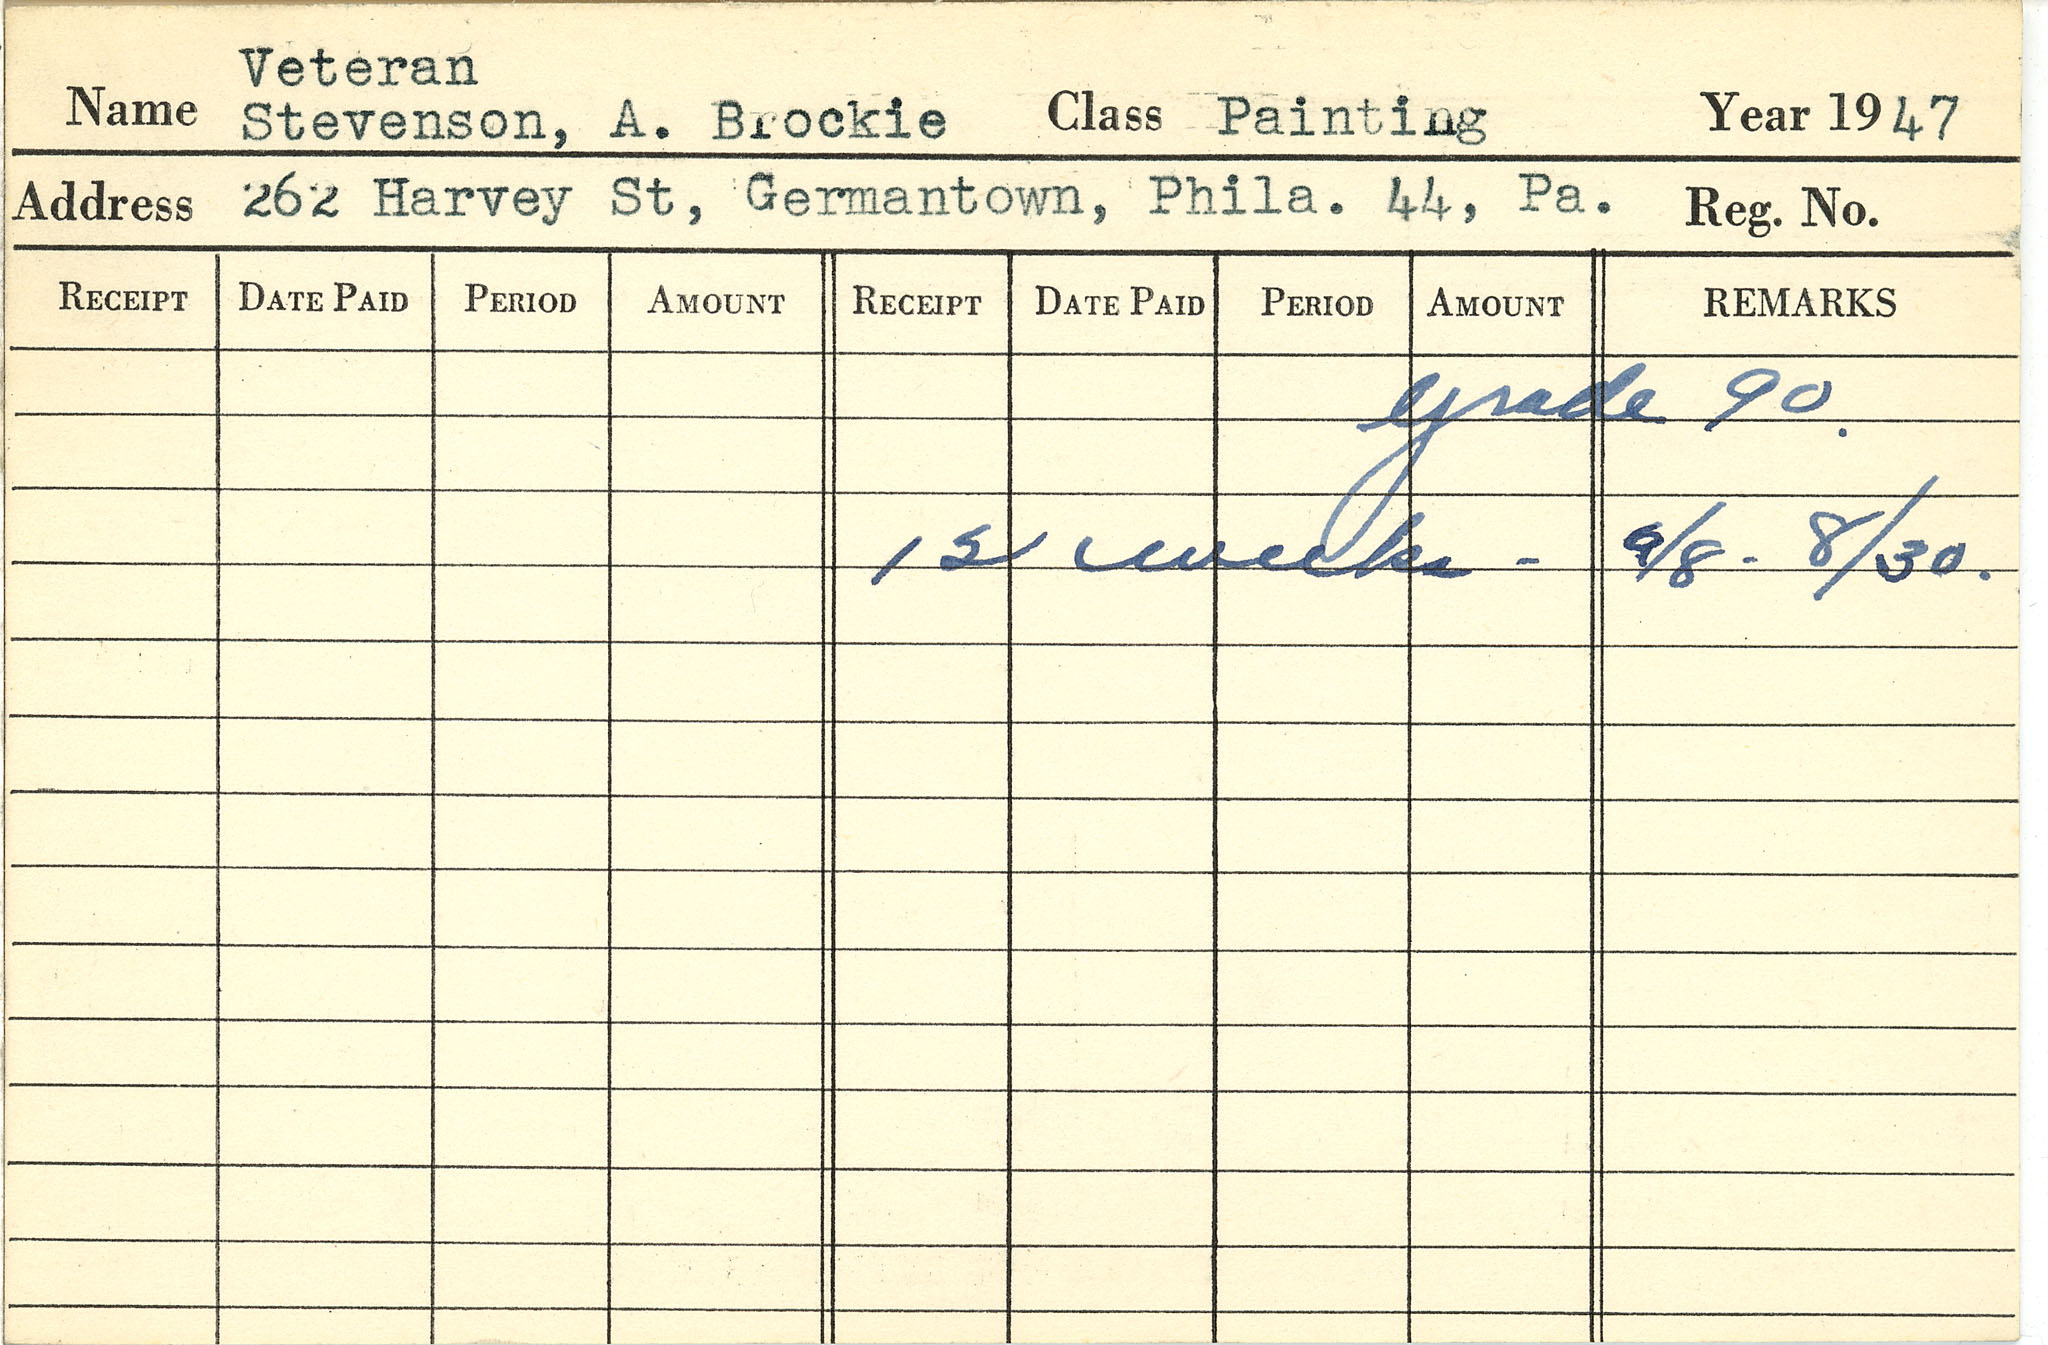 Veteran
Name Stevenson, A. Brockie Class Painting Year 1947
Address 262 Harvey St, Germantown, Phila. 44, Pa. Reg. No.
RECEIPT DATE PAID PERIOD AMOUNT RECEIPT DATE PAID PERIOD AMOUNT REMARKS
Grade 90.
weeks - 9/8 - 8/30.